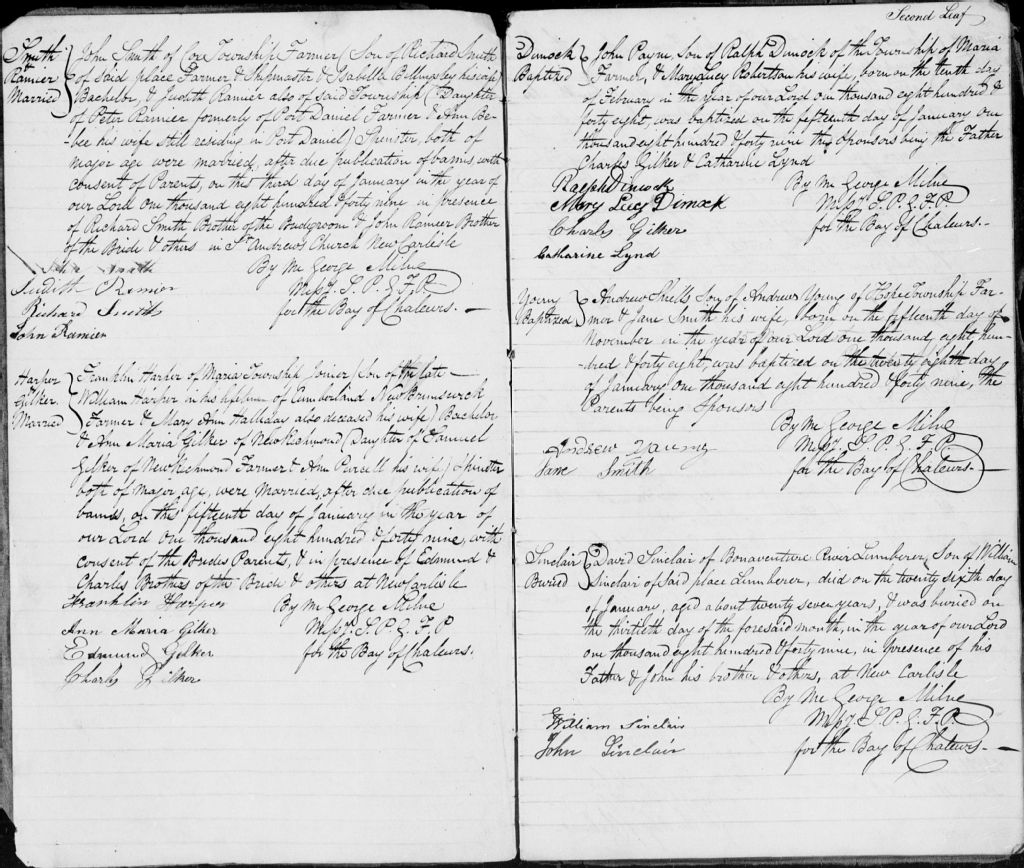 Smith & Ramier Married
John Smith of Cox Township Farmer (Son of Richard Smith
of said place Farmer & Shipmaster & Isabella Billingsley his wife)
Bachelor, & Judith Ramier also of said Township (Daughter
of Peter Ramier formerly of Port Daniel Farmer & Ann Be-
-bee his wife still residing in Port Daniel) Spinster, both of
major age were married, after due publication of banns with
consent of Parents, on this third day of January in the year of
our Lord one thousand eight hundred & forty nine in presence
of Richard Smith Brother of the Bridegroom & John Ramier Brother
of the Bride & others in St Andrews Church New Carlisle
By me George Milne
Missy. S. P. G. F. P.
for the Bay of Chaleurs.
John Smith
Judith Ramier
Richard Smith
John Ramier
Harper & Gilker. Married
Franklin Harper of Maria Township Joiner (Son of the late
William Harper in his lifetime of Cumberland New Brunswick
Farmer & Mary Ann Halliday also deceased his wife) Bachelor
& Ann Maria Gilker of New Richmond (Daughter of Samuel
Gilker of New Richmond Farmer & Ann Purcell his wife) Spinster
both of major age, were married, after due publication of
banns, on this fifteenth day of January in the year of
our Lord one thousand eight hundred & forty nine, with
consent of the Brides Parents, & in presence of Edmund &
Charles Brothers of the Bride & others at New Carlisle
By me George Milne
Missy. S. P. G. F. P
for the Bay of Chaleurs.
Franklin Harper
Ann Maria Gilker
Edmund Gilker
Charles Gilker
Second Leaf
Dimock Baptized
John Payne, Son of Ralph Dimock of the Township of Maria
Farmer, & Mary Lucy Robertson his wife, born on the tenth day
of February in the year of our Lord one thousand eight hundred &
forty eight, was baptized on the fifteenth day of January one
thousand eight hundred & forty nine the Sponsors being the Father
Charles Gilker & Catharine Lynd
By me George Milne
Missy. S. P. G. F. P.
for the Bay of Chaleurs.
Ralph Dimock
Mary Lucy Dimock
Charles Gilker
Catharine Lynd
Young Baptized
Andrew Shells Son of Andrew Young of Hope Township Far-
mer & Jane Smith his wife, born on the fifteenth day of
November in the year of our Lord one thousand, eight, hun-
-dred & forty eight, was baptized on the twenty eighth day
of January one thousand eight hundred & forty nine, the
Parents being Sponsors
By me George Milne
Missy. S. P. G. F. P.
for the Bay of Chaleurs.
Andrew Young
Jane Smith
Sinclair Buried
David Sinclair of Bonaventure River Lumberer, Son of William
Sinclair of said place Lumberer, died on the twenty sixth day
of January, aged about twenty seven years, & was buried on
the thirtieth day of the foresaid month, in the year of our Lord
one thousand eight hundred & forty nine, in presence of his
Father & John his brother & others, at New Carlisle
By me George Milne
Missy. S. P. G. F. P.
for the Bay of Chaleurs.
William Sinclair
John Sinclair